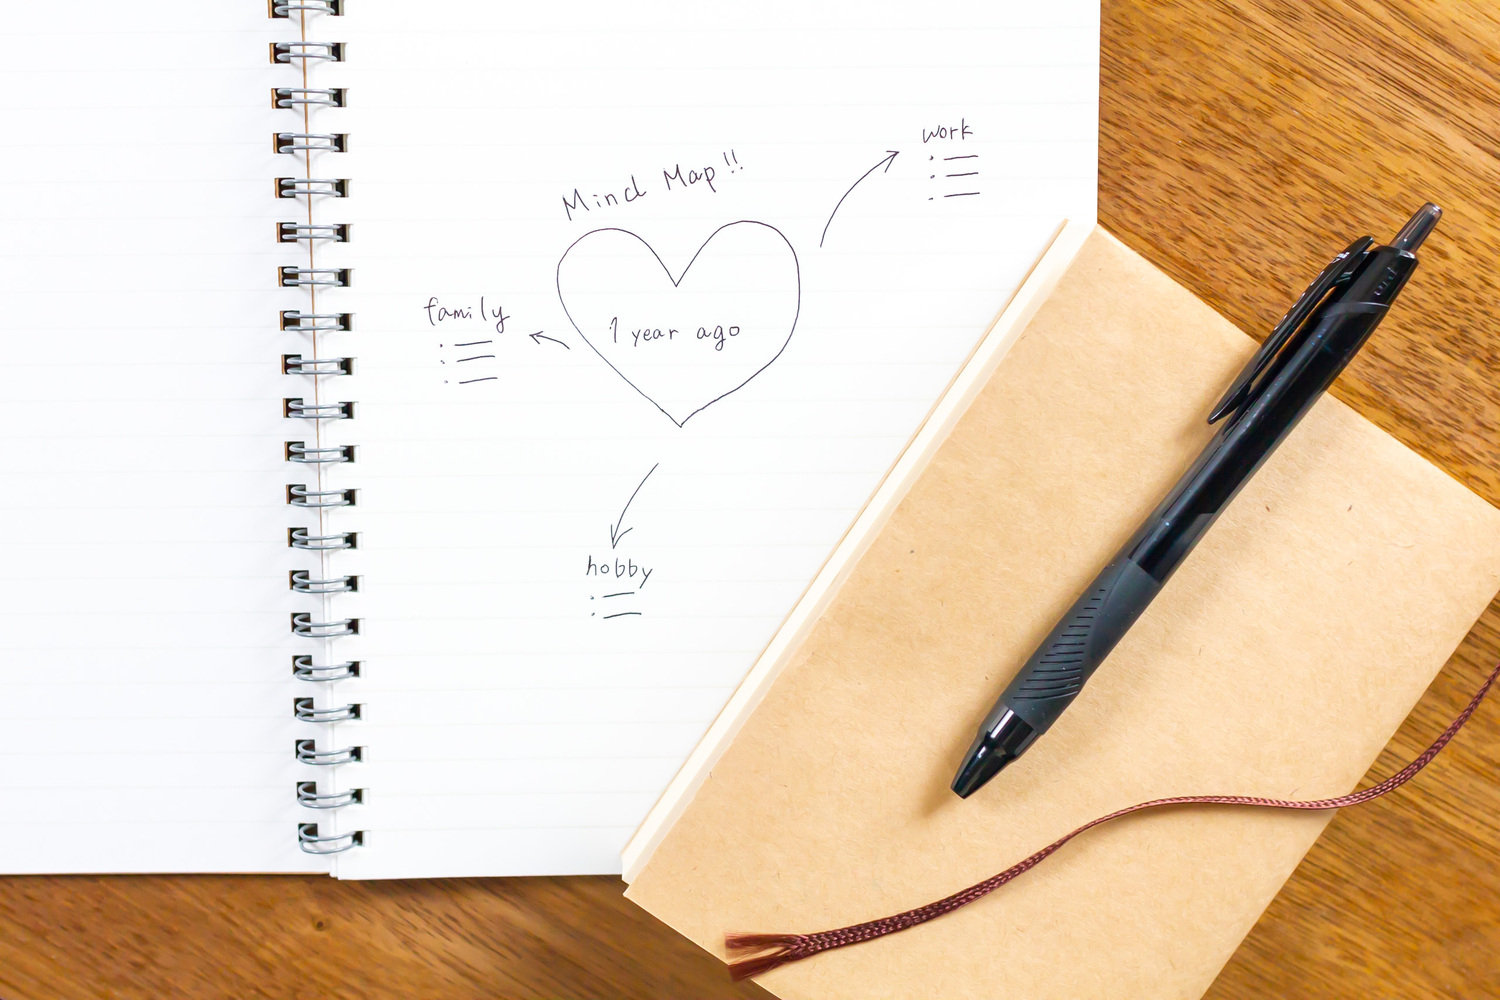 Mind Map!!
work
family
1 year ago
hobby